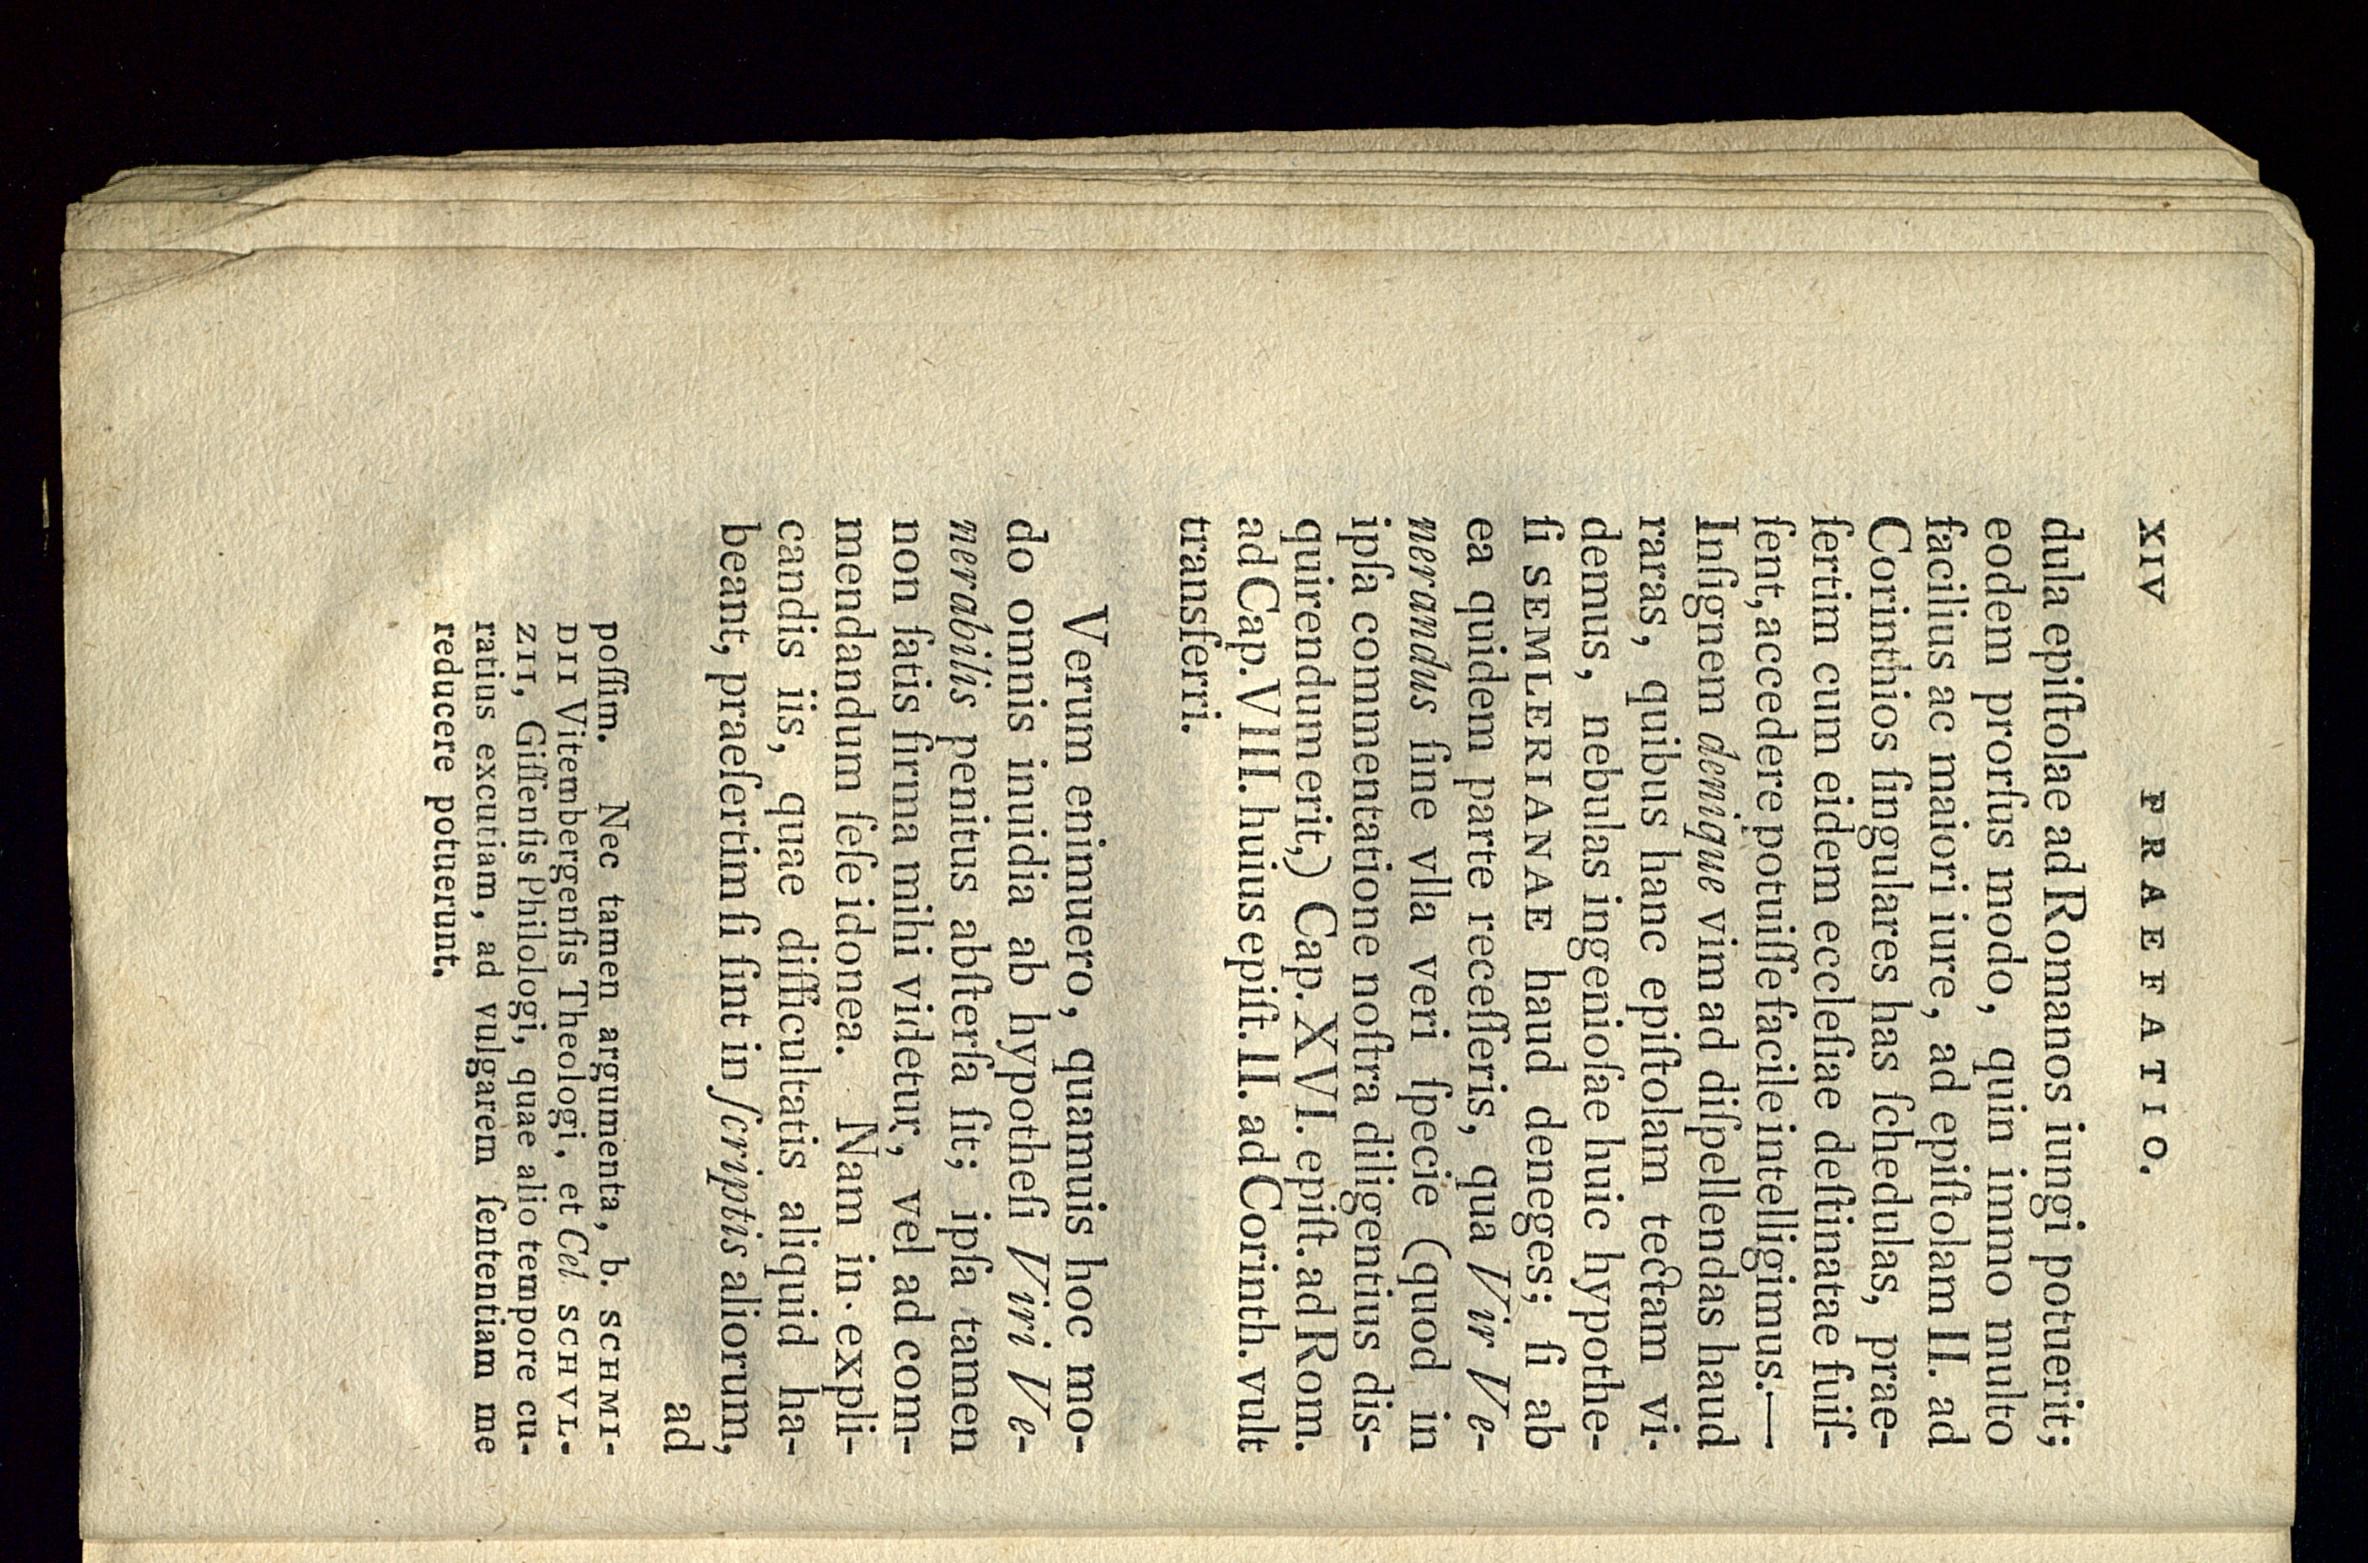 XIV PRAEFATIO.
dula epiſtolae ad Romanos iungi potuerit;
eodem prorſus modo, quin immo multo
facilius ac maiori iure, ad epiſtolam II. ad
Corinthios ſingulares has ſchedulas, prae-
ſertim cum eidem eccleſiae deſtinatae fuiſ-
ſent, accedere potuiſſe facile intelligimus.—
Inſignem denique vim ad diſpellendas haud
raras, quibus hanc epiſtolam tectam vi-
demus, nebulas ingenioſae huic hypothe-
ſi SEMLERIANAE haud deneges; ſi ab
ea quidem parte receſſeris, qua Vir Ve-
nerandus ſine vlla veri ſpecie (quod in
ipſa commentatione noſtra diligentius dis-
quirendum erit,) Cap. XVI. epiſt. ad Rom.
ad Cap. VIII. huius epiſt. II. ad Corinth. vult
transferri.
Verum enimuero, quamuis hoc mo-
do omnis inuidia ab hypotheſi Viri Ve-
nerabilis penitus abſterſa ſit; ipſa tamen
non ſatis firma mihi videtur, vel ad com-
mendandum ſeſe idonea. Nam in expli-
candis iis, quae difficultatis aliquid ha-
beant, praeſertim ſi ſint in ſcriptis aliorum,
ad
poſſim. Nec tamen argumenta, b. SCHMI-
DII Vitembergenſis Theologi, et Cel SCHVL-
ZII, Giſſenſis Philologi, quae alio tempore cu-
ratius excutiam, ad vulgarem ſententiam me
reducere potuerunt.